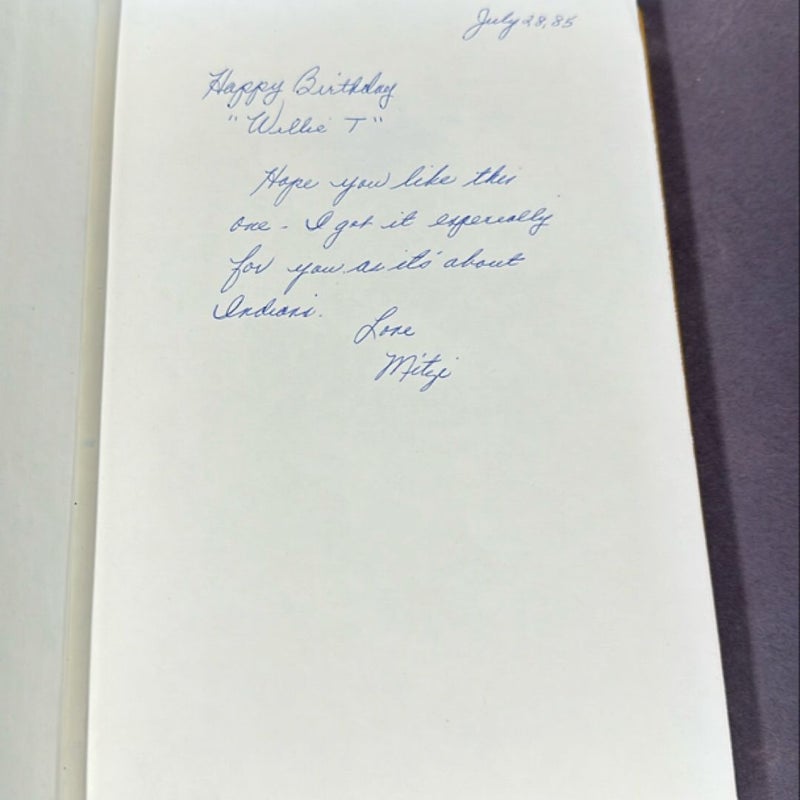 July 28, 85
Happy Birthday
"Willie T"
Hope you like this
one - I got it especially
for you as it's about
Indians.
Love
Mitzi